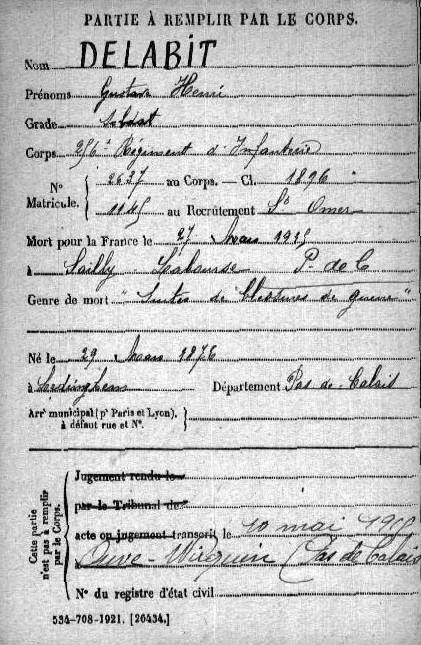 PARTIE À REMPLIR PAR LE CORPS.
Nom DELABIT
Prénoms Gustave Henri
Grade soldat
Corps 256e Régiment d'Infanterie
N° Matricule. { 2637 au Corps. — Cl. 1896
1145 au Recrutement St Omer
Mort pour la France le 27 Mars 1915
à Sailly Labourse P. de C
Genre de mort "Suites de blessures de guerre"
Né le 29 Mars 1876
à Ledinghem Département Pas de Calais
Arrt municipal (pr Paris et Lyon), }
à défaut rue et N°.
Cette partie n'est pas à remplir par le Corps. {
Jugement rendu le
par le Tribunal de
acte ou jugement transcrit le 10 mai 1915
Ouve-Wirquin (Pas de Calais
N° du registre d'état civil
534-708-1921. [26434.]